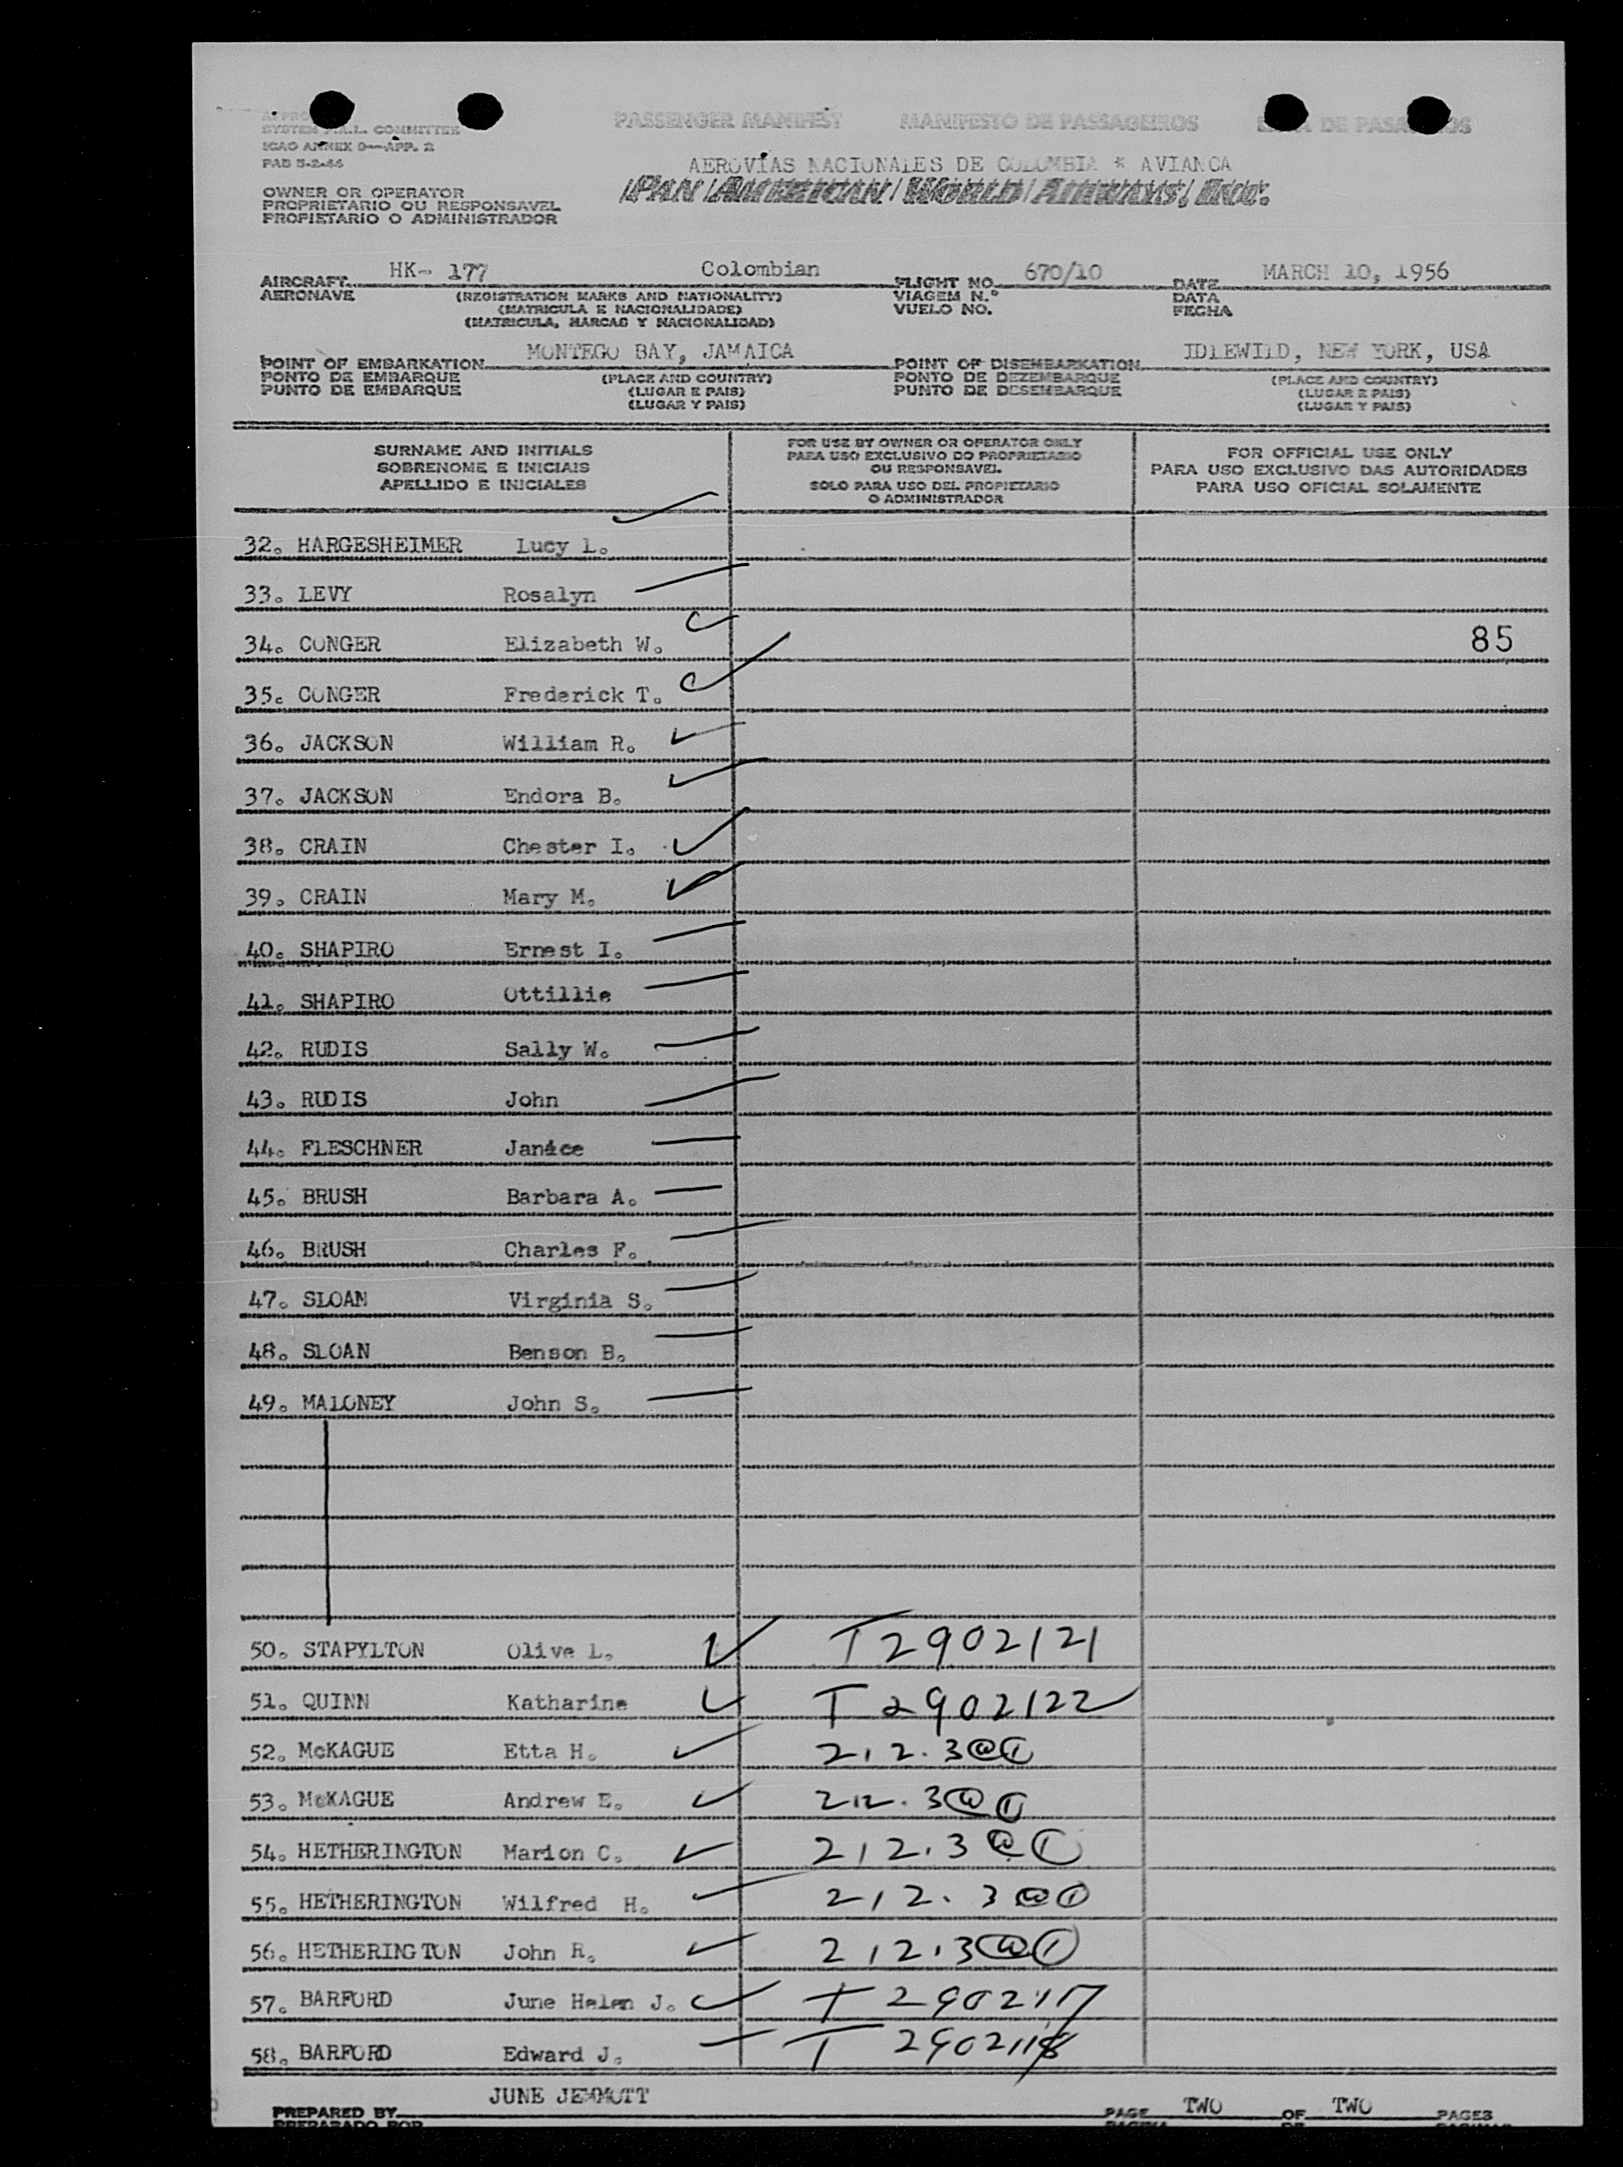 SYSTEM F.A.L. COMMITTEE
ICAO ANNEX 9—APP. 2
PAD 5-2-46
PASSENGER MANIFEST MANIFESTO DE PASSAGEIROS DE PASAJEROS
AEROVÍAS NACIONALES DE COLOMBIA * AVIANCA
PAN AMERICAN WORLD AIRWAYS, INC.
OWNER OR OPERATOR
PROPRIETARIO OU RESPONSAVEL
PROPIETARIO O ADMINISTRADOR
AIRCRAFT HK- 177 Colombian FLIGHT NO. 670/10 DATE MARCH 10, 1956
AERONAVE (REGISTRATION MARKS AND NATIONALITY) VIAGEM N.° DATA
(MATRICULA E NACIONALIDADE) VUELO NO. FECHA
(MATRICULA, MARCAS Y NACIONALIDAD)
POINT OF EMBARKATION MONTEGO BAY, JAMAICA POINT OF DISEMBARKATION IDLEWILD, NEW YORK, USA
PONTO DE EMBARQUE (PLACE AND COUNTRY) PONTO DE DEZEMBARQUE (PLACE AND COUNTRY)
PUNTO DE EMBARQUE (LUGAR E PAIS) PUNTO DE DESEMBARQUE (LUGAR E PAIS)
(LUGAR Y PAIS) (LUGAR Y PAIS)
SURNAME AND INITIALS
SOBRENOME E INICIAIS
APELLIDO E INICIALES
FOR USE BY OWNER OR OPERATOR ONLY
PARA USO EXCLUSIVO DO PROPRIETARIO
OU RESPONSAVEL
SOLO PARA USO DEL PROPIETARIO
O ADMINISTRADOR
FOR OFFICIAL USE ONLY
PARA USO EXCLUSIVO DAS AUTORIDADES
PARA USO OFICIAL SOLAMENTE
32. HARGESHEIMER Lucy L.
33. LEVY Rosalyn
34. CONGER Elizabeth W. 85
35. CONGER Frederick T.
36. JACKSON William R.
37. JACKSON Endora B.
38. CRAIN Chester I.
39. CRAIN Mary M.
40. SHAPIRO Ernest I.
41. SHAPIRO Ottillie
42. RUDIS Sally W.
43. RUDIS John
44. FLESCHNER Janice
45. BRUSH Barbara A.
46. BRUSH Charles F.
47. SLOAN Virginia S.
48. SLOAN Benson B.
49. MALONEY John S.
50. STAPYLTON Olive L. T2902121
51. QUINN Katharine T 2902122
52. McKAGUE Etta H. 212.3@①
53. McKAGUE Andrew E. 212.3@①
54. HETHERINGTON Marion C. 212.3@①
55. HETHERINGTON Wilfred H. 212.3@①
56. HETHERINGTON John R. 212.3@①
57. BARFORD June Helen J. T 2902117
58. BARFORD Edward J. T 2902118
PREPARED BY JUNE JEMMOTT PAGE TWO OF TWO PAGES